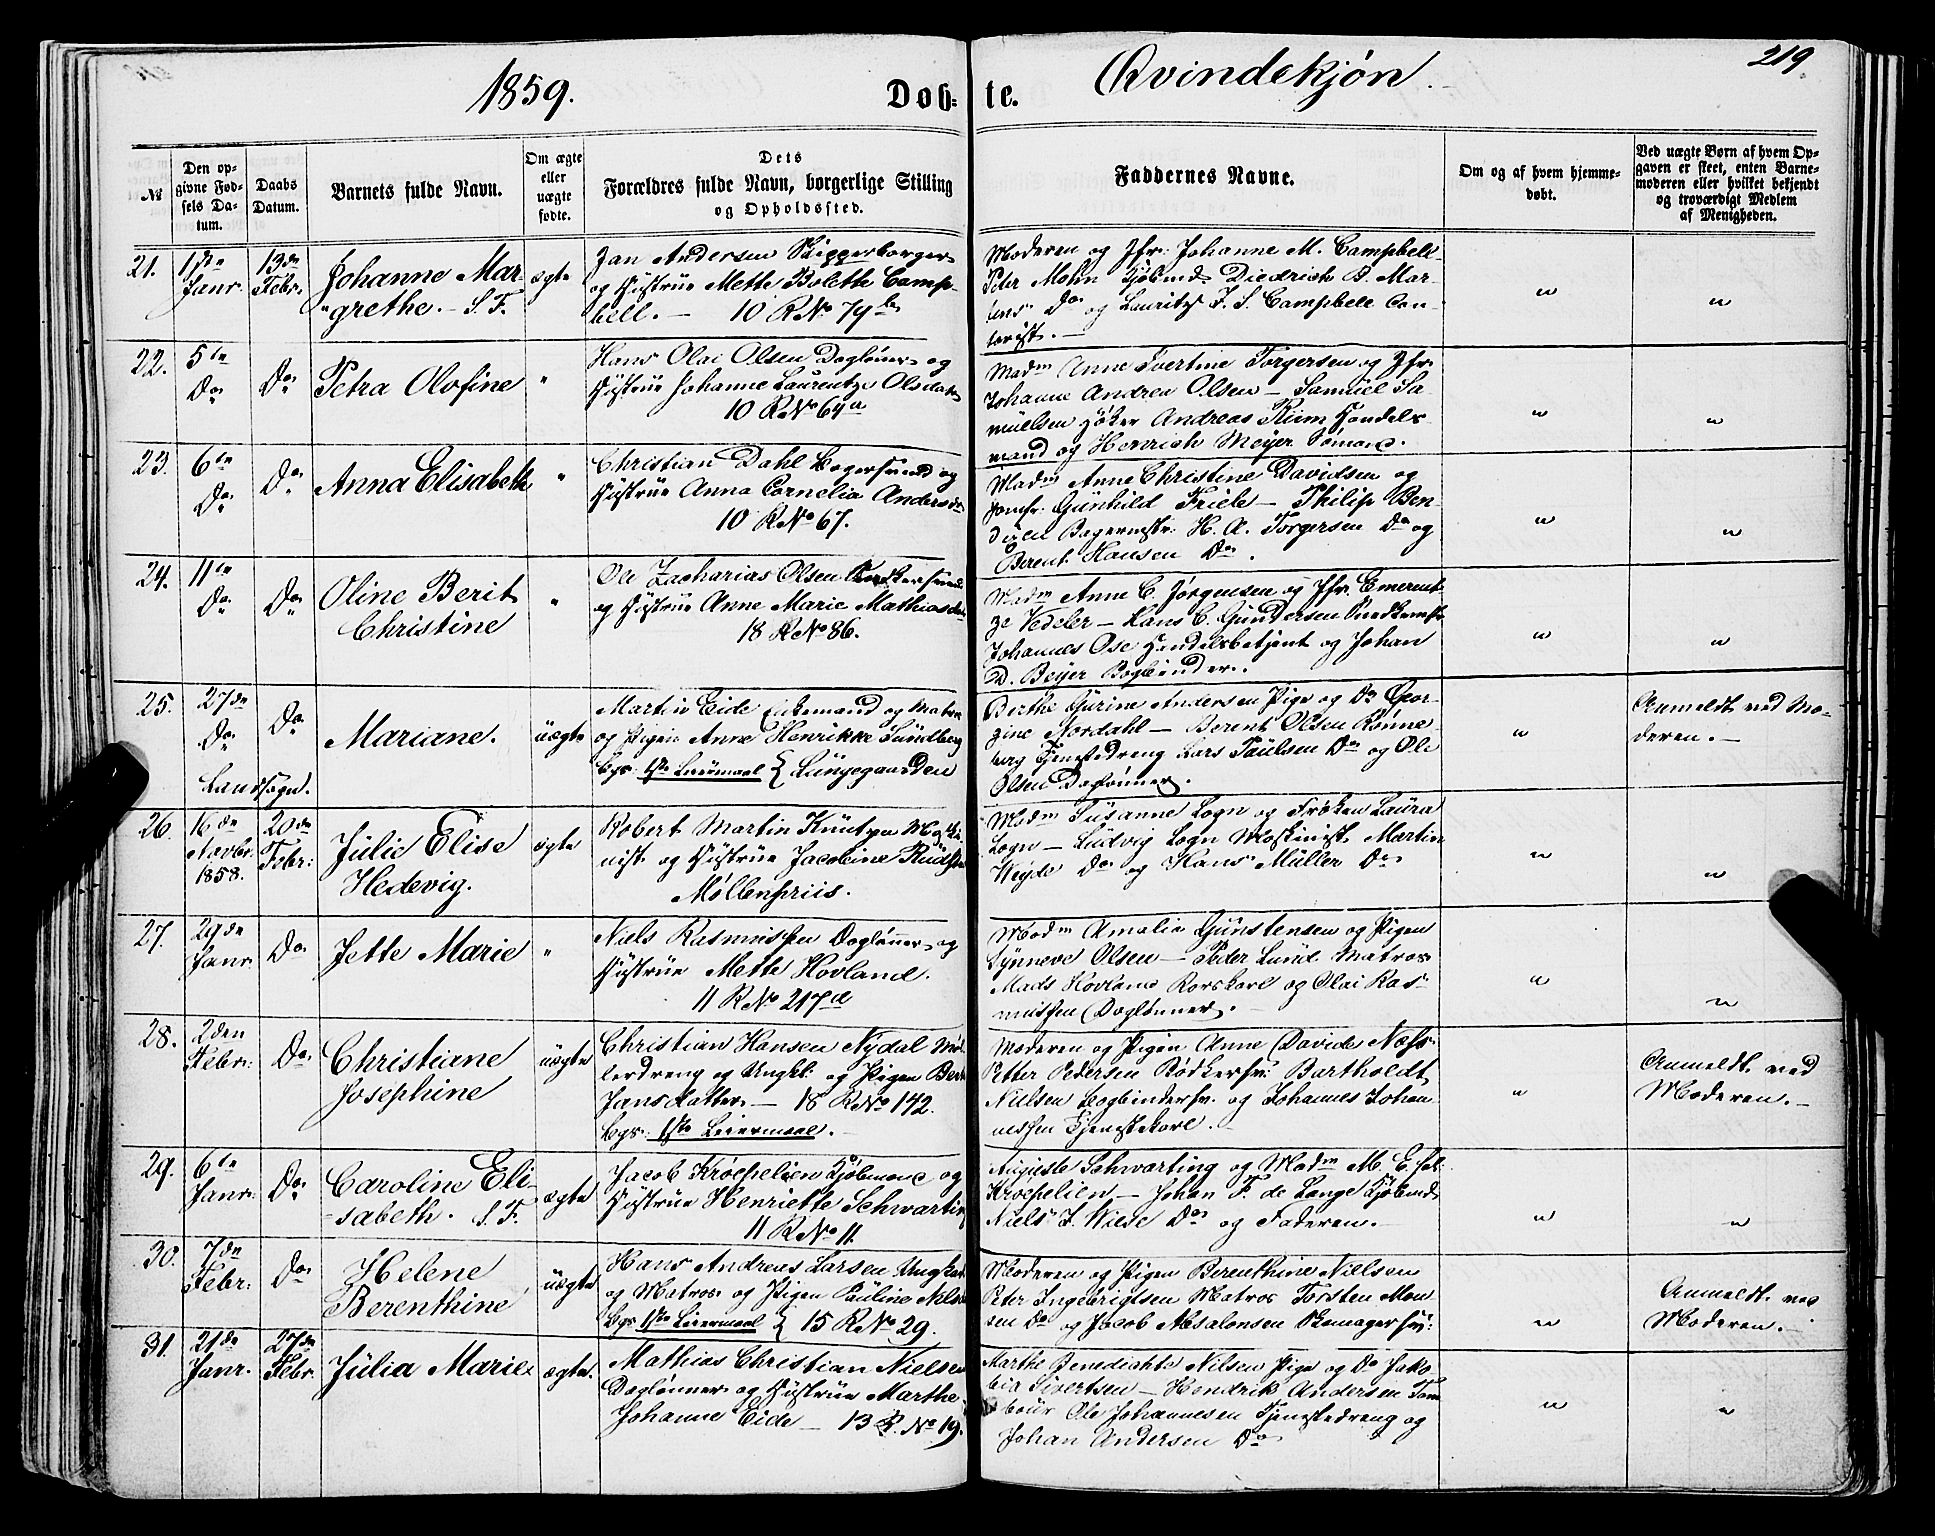 1859.
Døb-
te.
Qvindekjøn.
219.
№
Den op-
givne Fød-
sels Da-
tum.
Daabs
Datum.
Barnets fulde Navn.
Om ægte
eller
uægte
fødte.
Dets
Forældres fulde Navn, borgerlige Stilling
og Opholdssted.
Faddernes Navne.
Om og af hvem hjemme-
døbt.
Ved uægte Børn af hvem Op-
gaven er skeet, enten Barne-
moderen eller hvilket bekjendt
og troværdigt Medlem
af Menigheden.
21.
1ste
Janr.
13de
Febr.
Johanne Mar-
grethe. S. F.
ægte
Jan Andersen Skipperborger
og Hustrue Mette Bolethe Camp-
bell. — 10 R No 79b
Moderen og Jfr: Johanne M. Campbell
Peter Mohn Kjøbmd Diedrich B. Mar-
tens Do og Lauritz J. S. Campbell Con-
torist.
"
"
22.
5te
Do
Do
Petra Olofine
"
Hans Olai Olsen Dagløner og
Hustrue Johanne Laurentze Olsdatter
10 R No 64a
Madm Anne Ivertine Torgersen og Jfr.
Johanne Andrea Olsen — Samuel Sa-
muelsen Høker Andreas Riim Handels
mand og Henrich Meyer Sømand.
"
"
23.
6te
Do
Do
Anna Elisabeth
"
Christian Dahl Bagersvend og
Hustrue Anna Cornelia Andersd
10 R No 67.
Madm Anne Christine Davidsen og
Jomfr. Gunhild Friele — Philip Ben-
Bagermstr. H. A. Torgersen Do og
Berent Hansen Do.
"
"
24.
11te
Do
Do
Oline Berit
Christine
"
Ole Zacharias Olsen
og Hustrue Anne Marie Mathiasd
18 R No 86.
Madm Anne C. Jørgensen og Jfr. Emerent
ze Vedeler — Hans C. Gundersen Snedkermstr
Johannes Ose Handelsbetjent og Johan
D. Beyer Bogbinder.
"
"
25.
27de
Do
Landsogn.
Do
Mariane.
uægte
Martin Eide Enkemand og Matros
og Pigen Anne Henrikke Sundberg
bgs: 1ste Leiermaal { Lungegaarden
Berthe Gurine Andersen Pige og Do Geor-
gine Nordahl — Berent Olsen Rønne
berg Tjenestedreng Lars Paulsen Do og Ole
Olsen Dagløner.
"
Anmeldt ved Mo-
deren.
26.
16de
Novbr.
1858.
20de
Febr:
Julie Elise
Hedevig.
ægte
Robert Martin Knutzen Maski-
nist og Hustrue Jacobine
Møllenpriis.
Madm Susanne Logn og Frøken Laura
Logn — Ludvig Logn Maskinist Martin
Weyde Do og Hans Müller Do
"
"
27.
29de
Janr
Do
Jette Marie
"
Niels Rasmussen Dagløner og
Hustrue Mette Hovland.
11 R No 217d
Madm Amalie Gunstensen og Pigen
Synneve Olsen — Peder Lund Matros
Mads Hovland Rorskarl og Olai Ras-
mussen Dagløner.
"
"
28.
2den
Febr:
Do
Christiane
Josephine
uægte
Christian Hansen Nydal Mø-
lerdreng og Ungkl: og Pigen Berte
Jansdatter — 18 R No 142.
bgs: 1ste Leiermaal.
Moderen og Pigen Anne Davide Næss
Petter Pedersen Bødkersv: Bartholdt
Nielsen Bogbindersv. og Johannes Johan-
nessen Tjenestekarl.
"
Anmeldt ved
Moderen.
29.
6te
Janr:
Do
Caroline Eli-
sabeth. S. F.
ægte
Jacob Krøepelien Kjøbmand og
Hustrue Henriette Schwarting
11 R No 11.
Auguste Schwarting og Madm M. E.
Krøepelien — Johan F. de Lange Kjøbmd
Niels J. Wiese Do og Faderen.
"
"
30.
7de
Febr:
Do
Helene
Berenthine
uægte
Hans Andreas Larsen Ungkarl
og Matros og Pigen Pauline Nels
bgs 1ste Leiermaal { 15 R No 29.
Moderen og Pigen Berenthine Nielsen
Peter Ingebrigtsen Matros Torsten Mon
sen Do og Jacob Absalonsen Skomagersv:
"
Anmeldt ved
Moderen.
31.
21de
Janr.
27de
Febr.
Julia Marie
ægte.
Mathias Christian Nielsen
Dagløner og Hustrue Marthe
Johanne Eide — 13 R. No 19.
Marthe Benedichte Nilsen Pige og Do Jako-
bia Sivertsen — Hendrik Andersen Tam
bour Ole Johannesen Tjenestedreng og
Johan Andersen Do
"
"